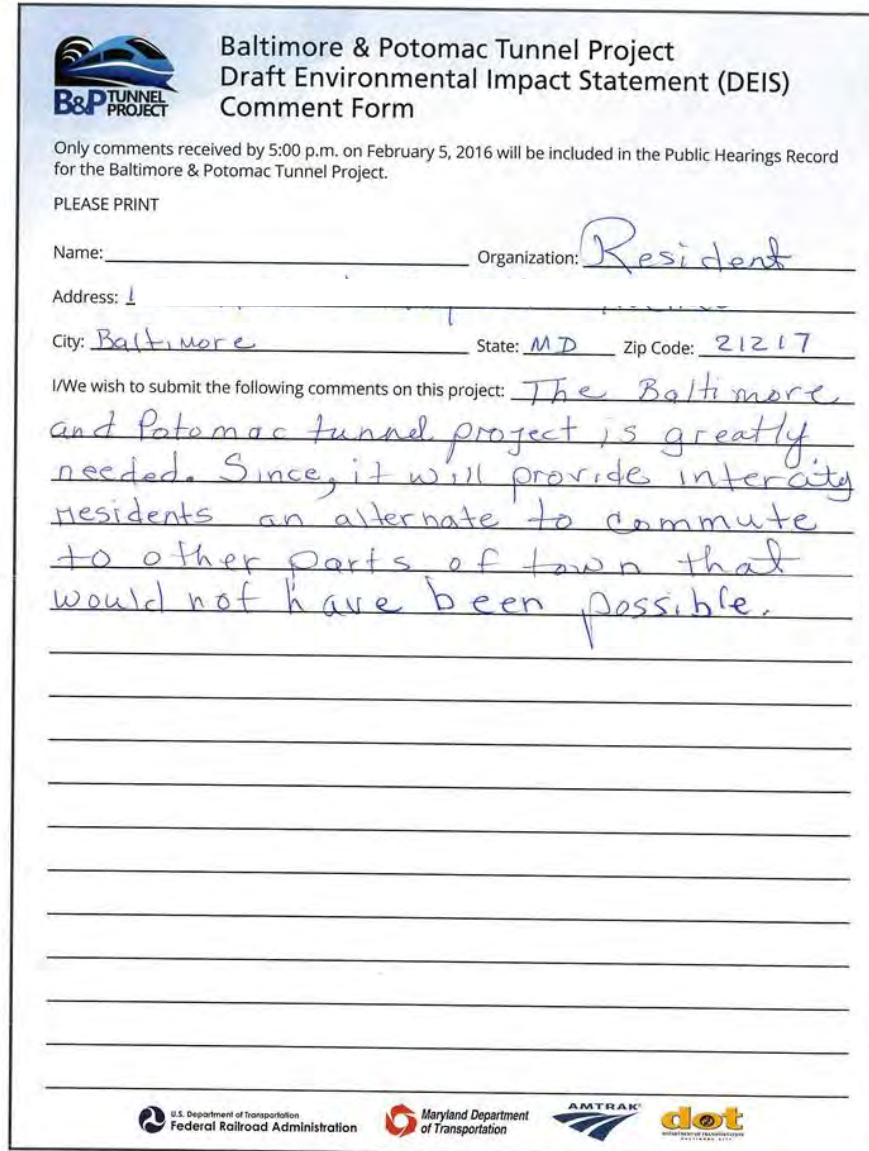 B&P TUNNEL PROJECT
Baltimore & Potomac Tunnel Project
Draft Environmental Impact Statement (DEIS)
Comment Form
Only comments received by 5:00 p.m. on February 5, 2016 will be included in the Public Hearings Record
for the Baltimore & Potomac Tunnel Project.
PLEASE PRINT
Name: Organization: Resident
Address:
City: Baltimore State: MD Zip Code: 21217
I/We wish to submit the following comments on this project: The Baltimore
and Potomac tunnel project is greatly
needed. Since, it will provide intercity
residents an alternate to commute
to other parts of town that
would not have been possible.
U.S. Department of Transportation
Federal Railroad Administration
Maryland Department
of Transportation
AMTRAK
dot
DEPARTMENT OF TRANSPORTATION
BALTIMORE CITY